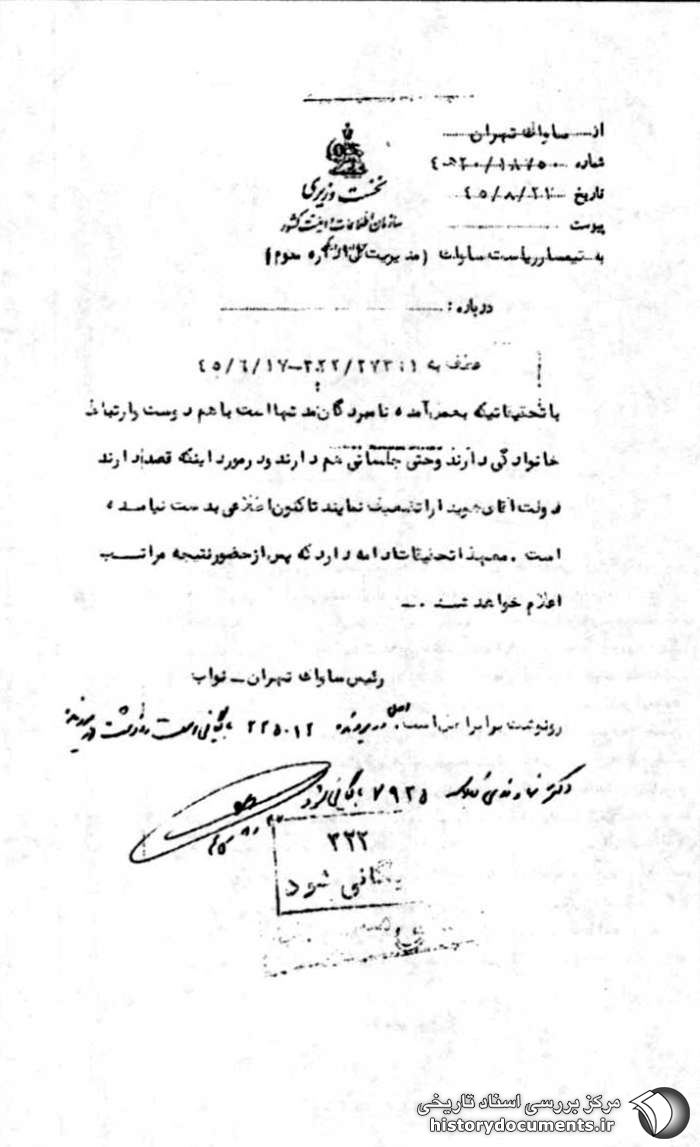 از ساواك تهران
شماره ۱۸۷۵۰/۲۰ه۴
تاریخ ۴۵/۸/۲۱
پیوست
نخست وزیری
سازمان اطلاعات و امنیت کشور
به تیمسار ریاست ساواك (مدیریت کل اداره سوم)
درباره :
عطف به ۳۲۲/۲۷۳۰۱-۴۵/۶/۱۷
با تحقیقاتیکه بعمل آمده نامبردگان مدتها است با هم دوست و ارتباط
خانوادگی دارند و حتی جلساتی هم دارند و در مورد اینکه قصد دارند
دولت آقای هویدا را تضعیف نمایند تاکنون اطلاعی بدست نیامده
است . معهذا تحقیقات ادامه دارد که پس از حصول نتیجه مراتب
اعلام خواهد شد .
رئیس ساواك تهران ـ نواب
رونوشت برابر اصل است. اصل در پرونده ۲۲۵۰۱۲ بایگانی است
دکتر ۷۹۲۵ بایگانی شود
۳۲۲
بایگانی شود
مرکز بررسی اسناد تاریخی
historydocuments.ir